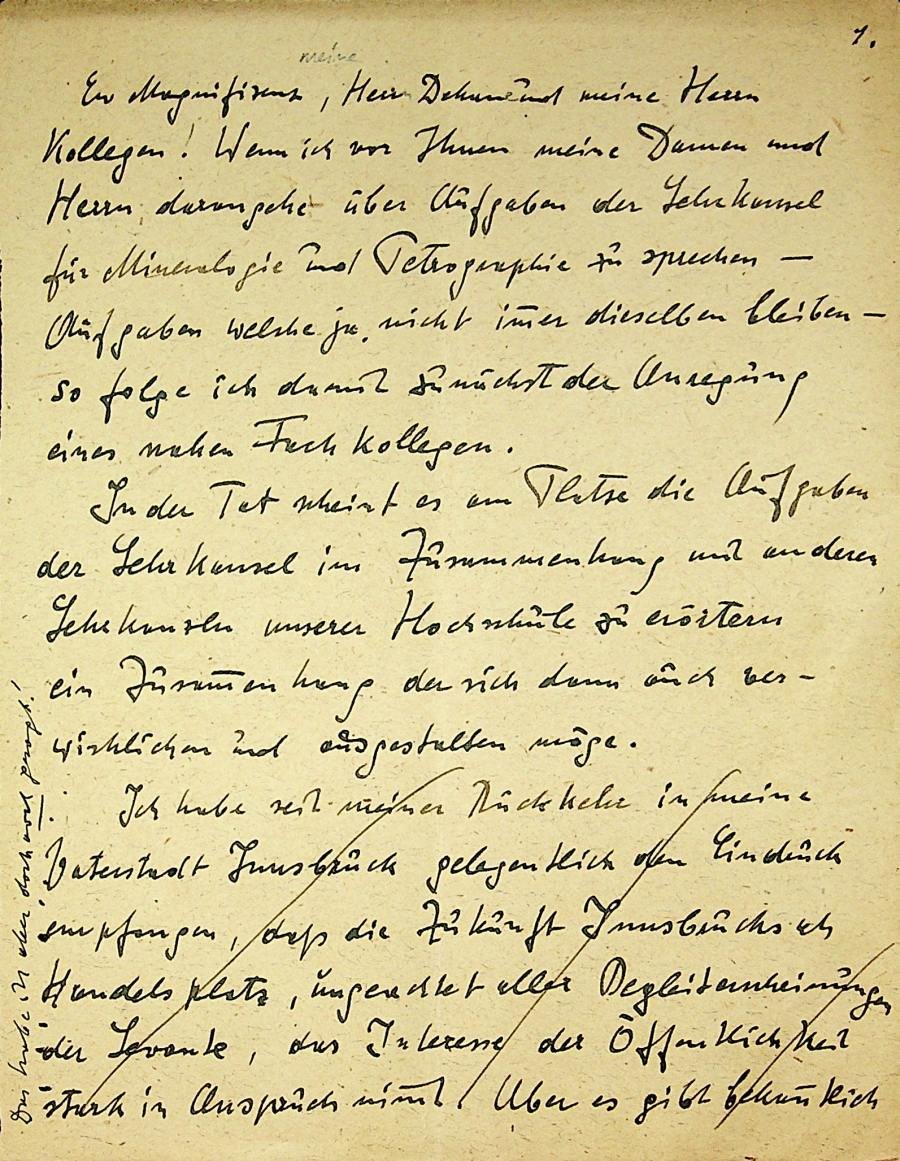 1.
meine
Ew Magnifizenz, Herr Dekan und meine Herrn
Kollegen! Wenn ich vor Ihnen meine Damen und
Herrn darangehe über Aufgaben der Lehrkanzel
für Mineralogie und Petrographie zu sprechen —
Aufgaben welche ja nicht im̅er dieselben bleiben —
so folge ich damit zunächst der Anregung
eines nahen Fachkollegen.
In der Tat scheint es am Platze die Aufgaben
der Lehrkanzel im Zusammenhang mit anderen
Lehrkanzeln unserer Hochschule zu erörtern
ein Zusam̅enhang der sich dann auch ver-
wirklichen und ausgestalten möge.
Ich habe seit meiner Rückkehr in meine
Vaterstadt Innsbruck gelegentlich den Eindruck
empfangen, daſs die Zukunft Innsbrucks als
Handelsplatz, ungeachtet aller Begleiterscheinungen
der Levante, das Interesse der Öffentlichkeit
stark in Anspruch nim̅t. Aber es gibt bekan̅tlich
Das habe ich aber doch